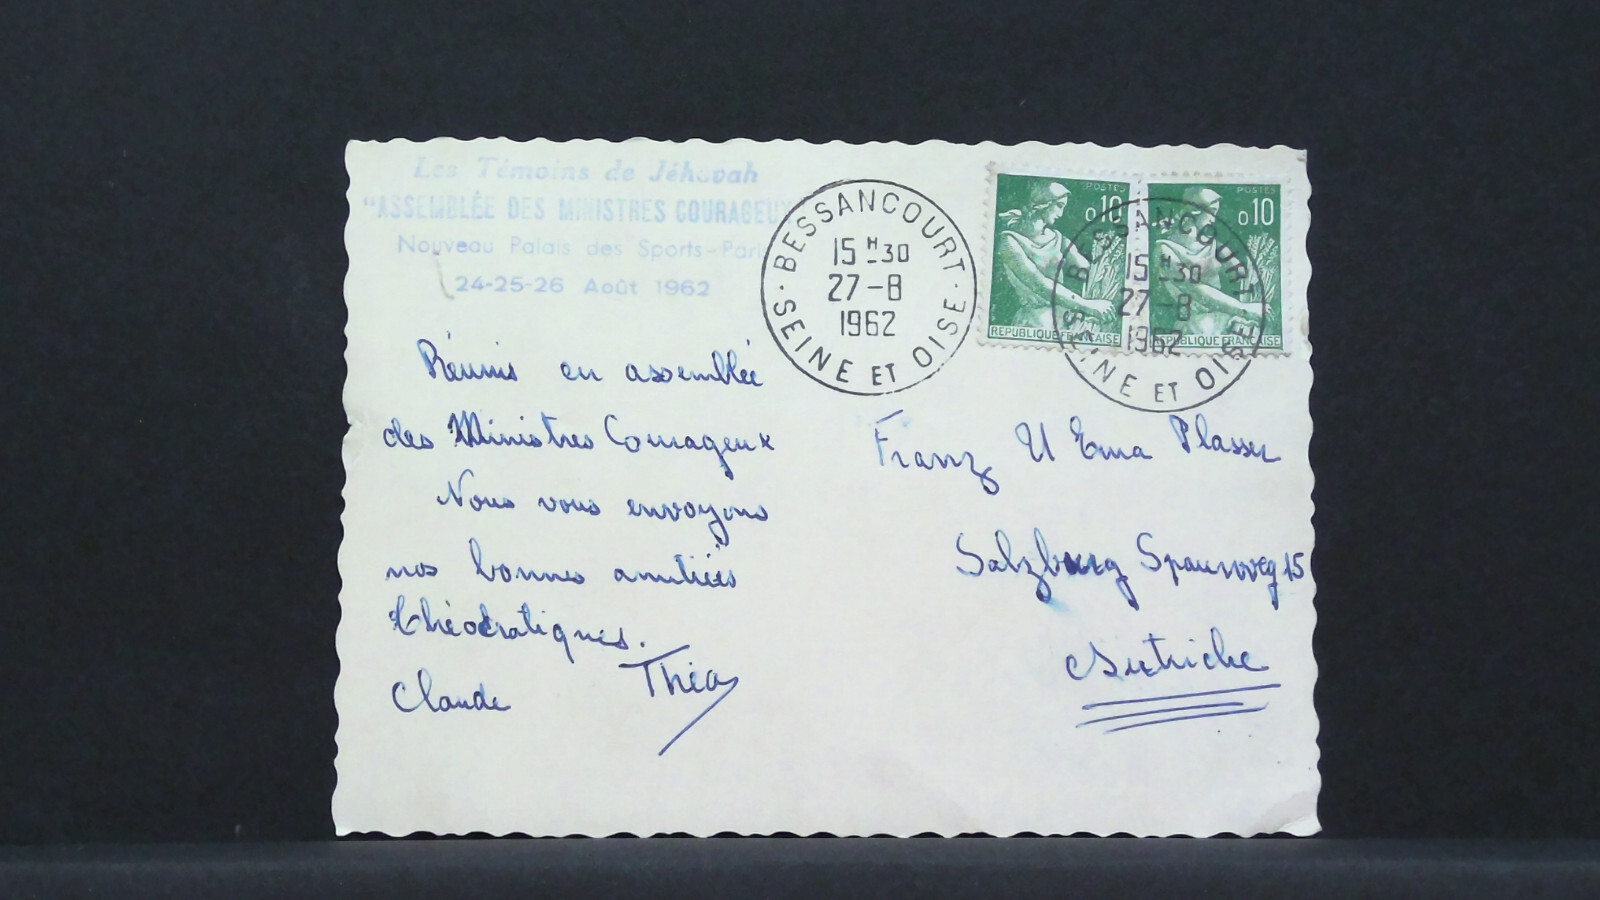 Les Témoins de Jéhovah
"ASSEMBLÉE DES MINISTRES COURAGEUX
Nouveau Palais des Sports-Paris
24-25-26 Août 1962
BESSANCOURT
15 H 30
27-8
1962
SEINE ET OISE
POSTES
0,10
REPUBLIQUE FRANÇAISE
POSTES
0,10
REPUBLIQUE FRANÇAISE
BESSANCOURT
15 H 30
27-8
1962
SEINE ET OISE
Réunis en assemblée
des Ministres Courageux
Nous vous envoyons
nos bonnes amitiés
théocratiques.
Claude Théo
Franz U Ema
Salzburg 15
Autriche